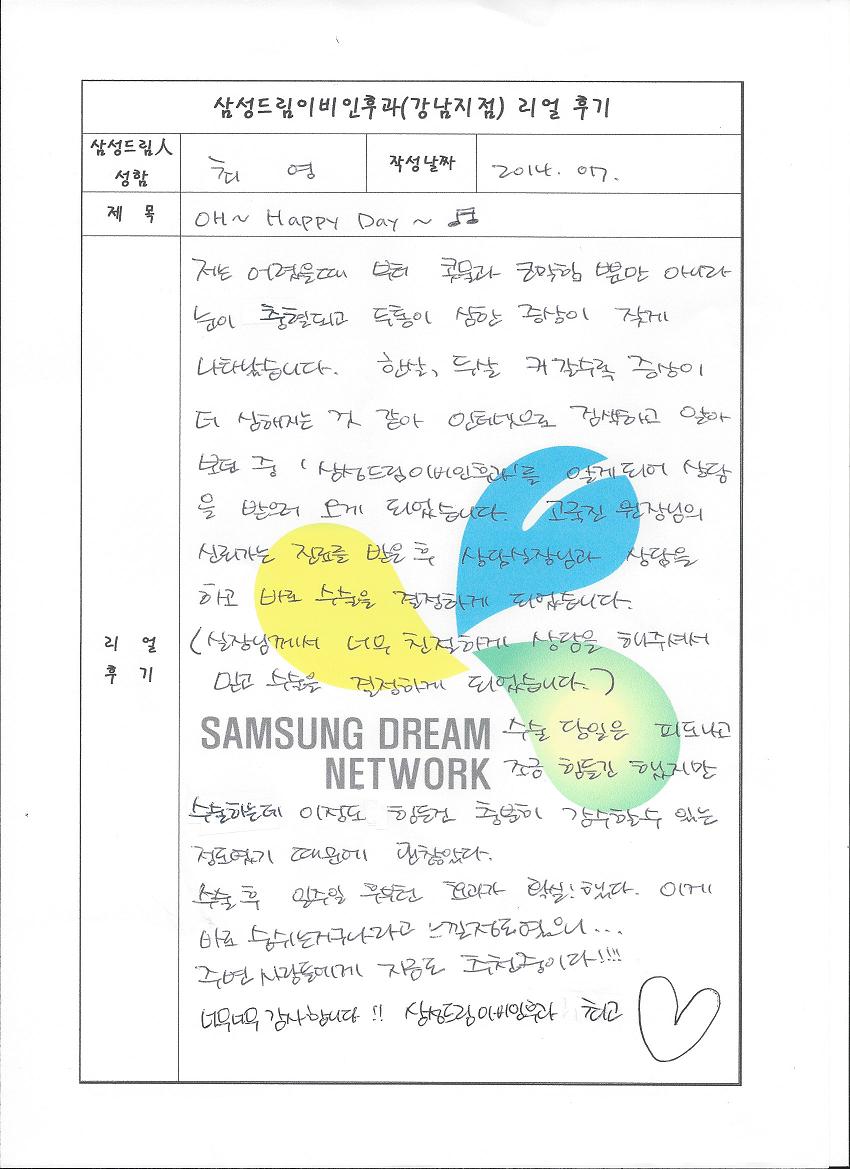 삼성드림이비인후과(강남지점) 리얼 후기
삼성드림人 성함
최 영
작성날짜
2014. 07.
제 목
OH~ Happy Day ~ ♫
리 얼 후 기
저는 어렸을때 부터 콧물과 코막힘 뿐만 아니라
눈이 충혈되고 두통이 심한 증상이 잦게
나타났습니다. 한살, 두살 커갈수록 증상이
더 심해지는 것 같아 인터넷으로 검색하고 알아
보던 중 '삼성드림이비인후과'를 알게되어 상담
을 받으러 오게 되었습니다. 고국진 원장님의
신뢰가는 진료를 받은 후 상담실장님과 상담을
하고 바로 수술을 결정하게 되었습니다.
(실장님께서 너무 친절하게 상담을 해주셔서
믿고 수술을 결정하게 되었습니다.)
SAMSUNG DREAM
NETWORK
수술 당일은 피도나고
조금 힘들긴 했지만
수술하는데 이정도 힘든건 충분히 감수할수 있는
정도였기 때문에 괜찮았다.
수술 후 일주일 후부턴 효과가 확실!했다. 이게
바로 숨쉬는거구나라고 느낄정도였으니...
주변 사람들에게 지금도 추천중이다!!!!
너무너무 감사합니다!! 삼성드림이비인후과 최고